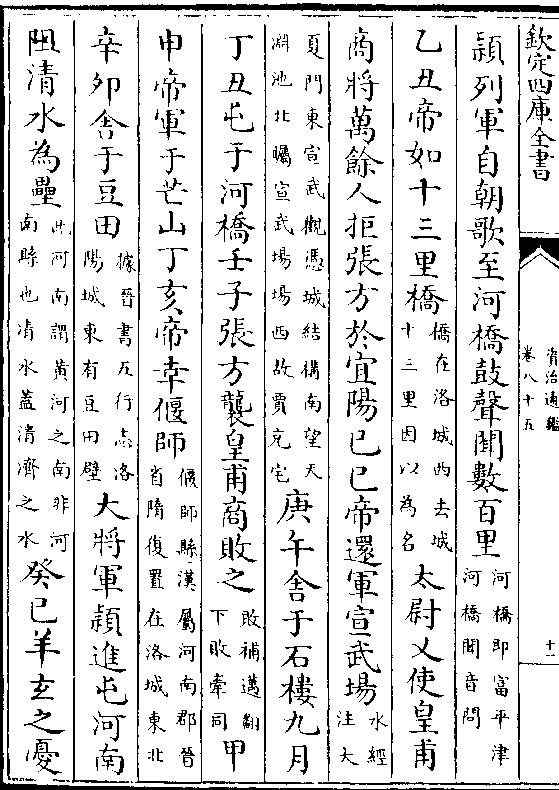 欽定四庫全書
資治通鑑
卷八十五
十一
穎列軍自朝歌至河橋鼓聲聞數百里河橋即富平津
河橋聞音問
乙丑帝如十三里橋橋在洛城西去城
十三里因以為名太尉乂使皇甫
商將萬餘人拒張方於宜陽已巳帝還軍宣武場水經
注大
夏門東宣武觀憑城結構南望天
淵池北矚宣武場場西故賈充宅庚午舍于石樓九月
丁丑屯于河橋壬子張方襲皇甫商敗之敗補邁翻
下敗牽同甲
申帝軍于芒山丁亥帝幸偃師偃師縣漢屬河南郡晉
省隋復置在洛城東北
辛卯舍于豆田據晉書五行志洛
陽城東有豆田壁大將軍穎進屯河南
阻清水為壘此河南謂黃河之南非河
南縣也清水蓋清濟之水癸巳羊玄之憂